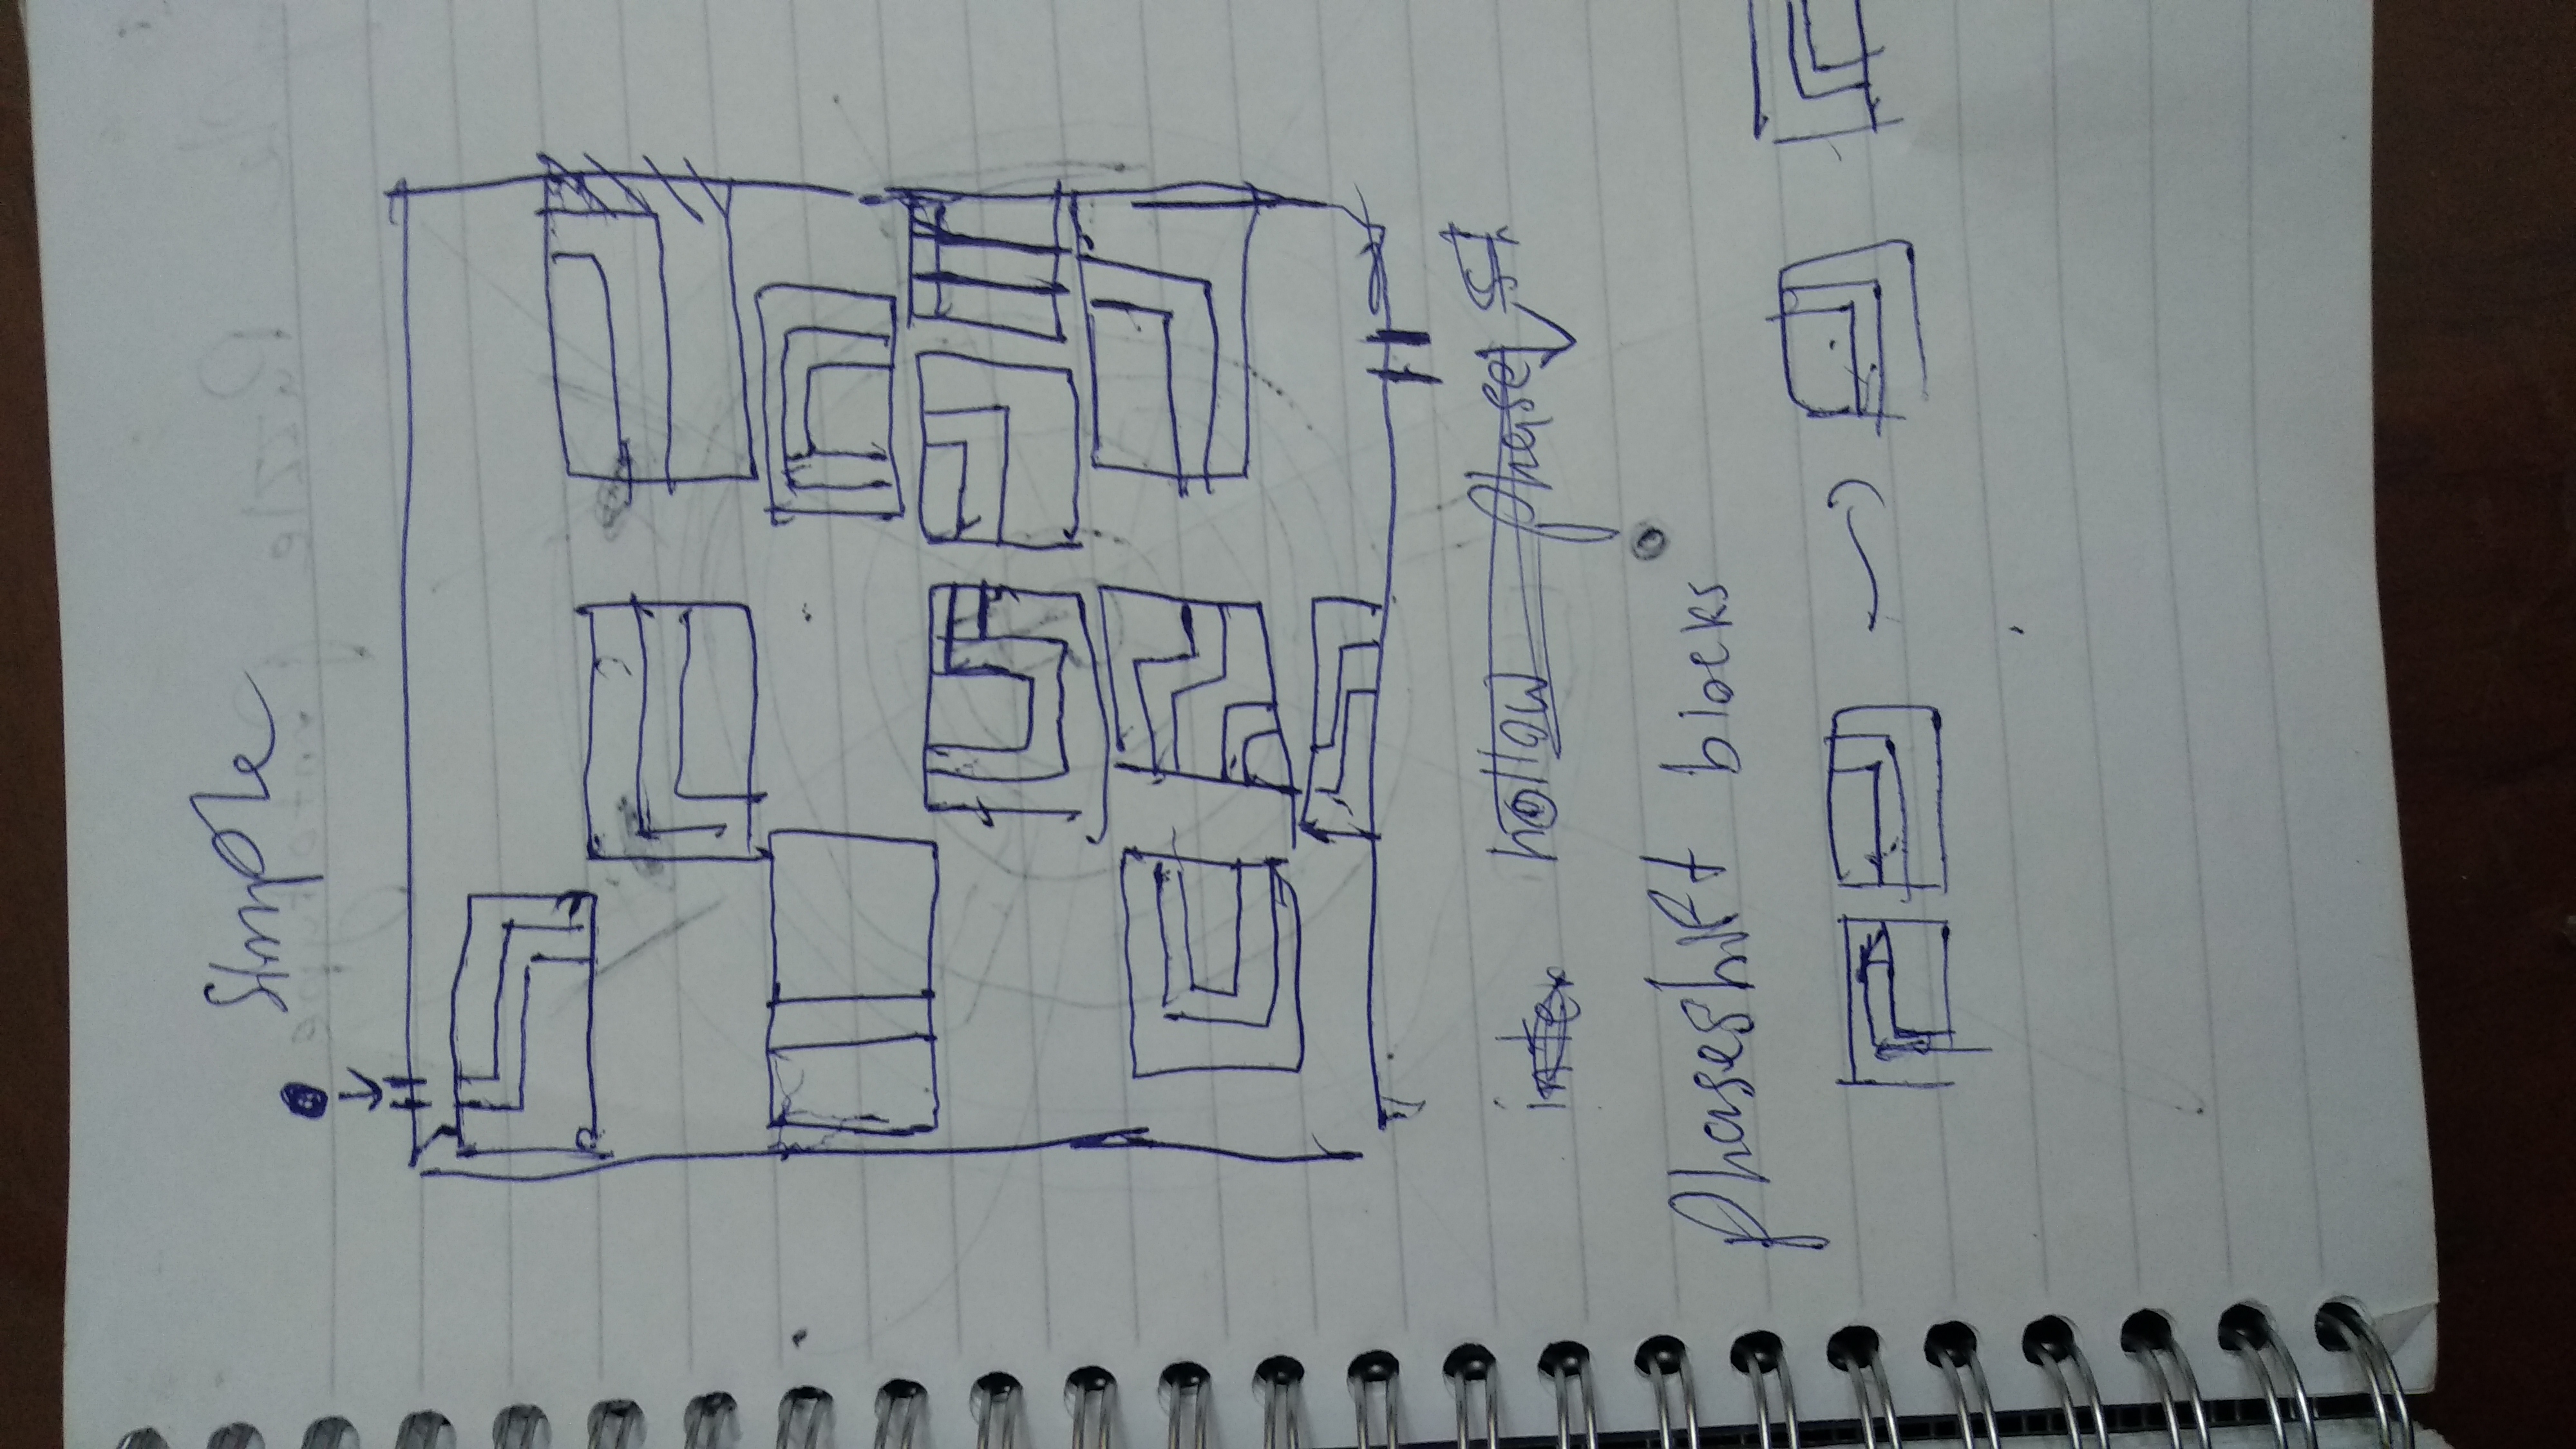 Simple
inter hollow phase sh
phaseshift blocks